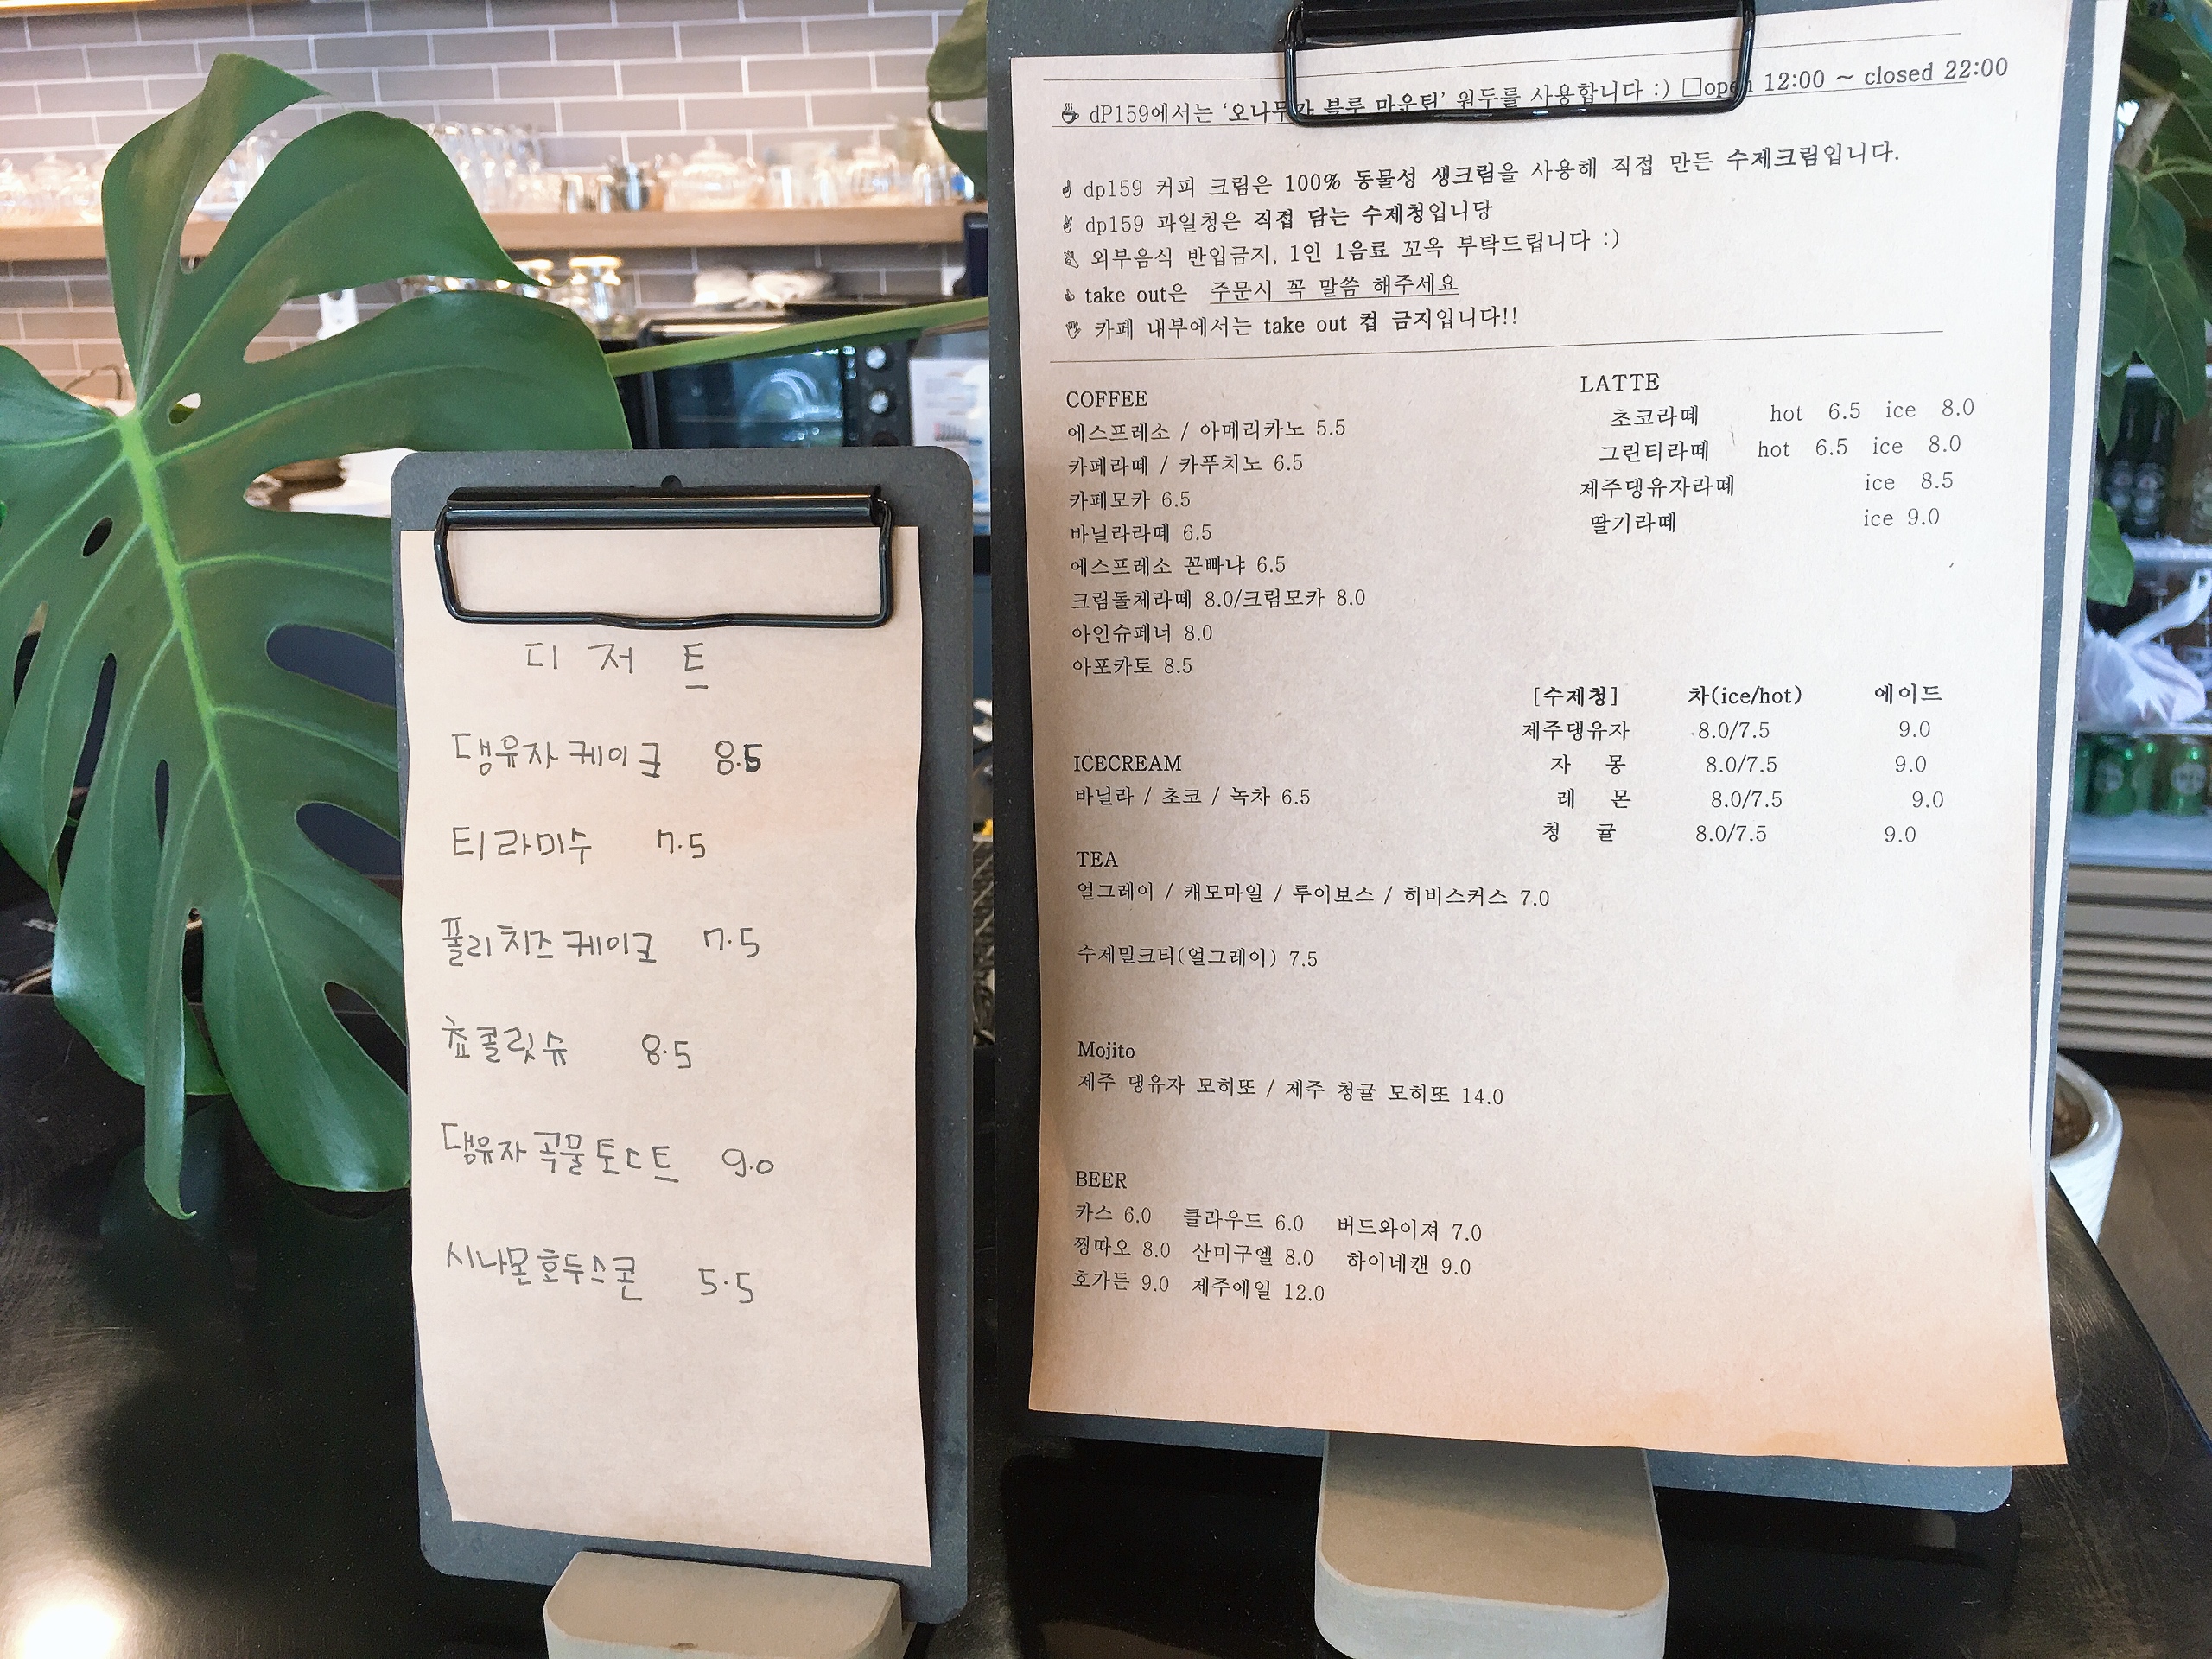 디저트
댕유자케이크 8.5
티라미수 7.5
풀리치즈케이크 7.5
쵸콜릿슈 8.5
댕유자곡물토스트 9.0
시나몬호두스콘 5.5
dP159에서는 '오나무가 블루 마운틴' 원두를 사용합니다 :) □open 12:00 ~ closed 22:00
dp159 커피 크림은 100% 동물성 생크림을 사용해 직접 만든 수제크림입니다.
dp159 과일청은 직접 담는 수제청입니당
외부음식 반입금지, 1인 1음료 꼬옥 부탁드립니다 :)
take out은 주문시 꼭 말씀 해주세요
카페 내부에서는 take out 컵 금지입니다!!
COFFEE
에스프레소 / 아메리카노 5.5
카페라떼 / 카푸치노 6.5
카페모카 6.5
바닐라라떼 6.5
에스프레소 꼰빠냐 6.5
크림돌체라떼 8.0/크림모카 8.0
아인슈페너 8.0
아포카토 8.5
LATTE
초코라떼 hot 6.5 ice 8.0
그린티라떼 hot 6.5 ice 8.0
제주댕유자라떼 ice 8.5
딸기라떼 ice 9.0
[수제청] 차(ice/hot) 에이드
제주댕유자 8.0/7.5 9.0
자 몽 8.0/7.5 9.0
레 몬 8.0/7.5 9.0
청 귤 8.0/7.5 9.0
ICECREAM
바닐라 / 초코 / 녹차 6.5
TEA
얼그레이 / 캐모마일 / 루이보스 / 히비스커스 7.0
수제밀크티(얼그레이) 7.5
Mojito
제주 댕유자 모히또 / 제주 청귤 모히또 14.0
BEER
카스 6.0 클라우드 6.0 버드와이져 7.0
찡따오 8.0 산미구엘 8.0 하이네캔 9.0
호가든 9.0 제주에일 12.0